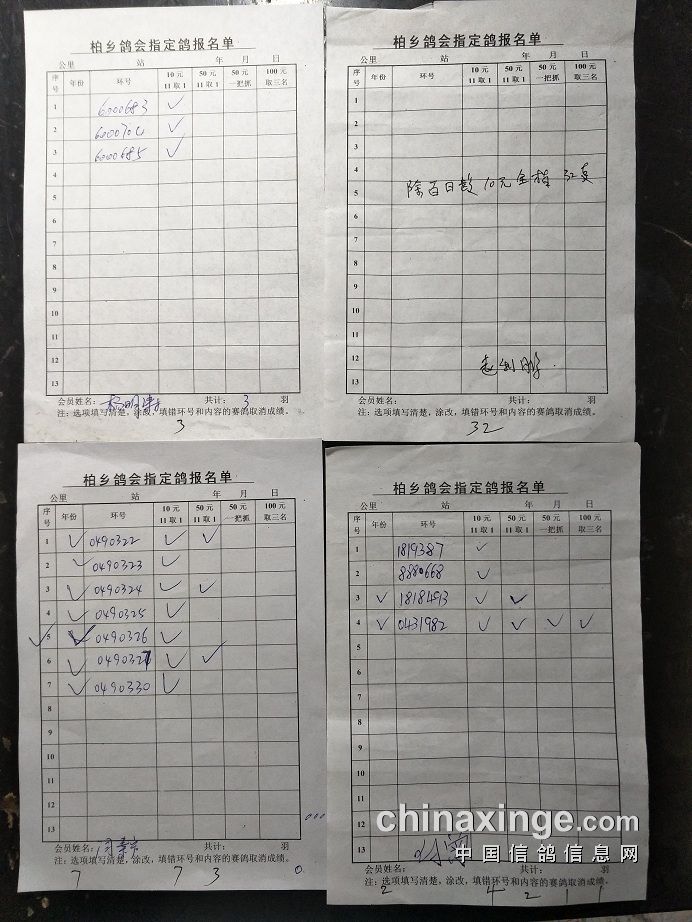 柏乡鸽会指定鸽报名单
公里 站 年 月 日
序号 年份 环号 10元 11取1 50元 11取1 50元 一把抓 100元 取三名
1 6000683 ✓
2 6000700 ✓
3 6000685 ✓
4
5
6
7
8
9
10
11
12
13
会员姓名: 共计: 3 羽
注:选项填写清楚,涂改,填错环号和内容的赛鸽取消成绩。
3
柏乡鸽会指定鸽报名单
公里 站 年 月 日
序号 年份 环号 10元 11取1 50元 11取1 50元 一把抓 100元 取三名
1
2
3
4
除百日款10元全 32
5
6
7
8
9
10
11
12
13
会员姓名: 共计: 羽
注:选项填写清楚,涂改,填错环号和内容的赛鸽取消成绩。
32
柏乡鸽会指定鸽报名单
公里 站 年 月 日
序号 年份 环号 10元 11取1 50元 11取1 50元 一把抓 100元 取三名
1 ✓ 0490322 ✓ ✓
2 ✓ 0490323 ✓
3 ✓ 0490324 ✓ ✓
4 ✓ 0490325 ✓
5 ✓ 0490326 ✓
6 ✓ 0490327 ✓ ✓
7 ✓ 0490330 ✓
8
9
10
11
12
13
会员姓名: 共计: 羽
注:选项填写清楚,涂改,填错环号和内容的赛鸽取消成绩。
7 7 3 0
柏乡鸽会指定鸽报名单
公里 站 年 月 日
序号 年份 环号 10元 11取1 50元 11取1 50元 一把抓 100元 取三名
1 1819387 ✓
2 8880668 ✓
3 ✓ 1818493 ✓ ✓
4 ✓ 0431982 ✓ ✓ ✓ ✓
5
6
7
8
9
10
11
12
13
会员姓名: 共计: 羽
注:选项填写清楚,涂改,填错环号和内容的赛鸽取消成绩。
2 4 2 1 1
chinaxinge.com
中国信鸽信息网